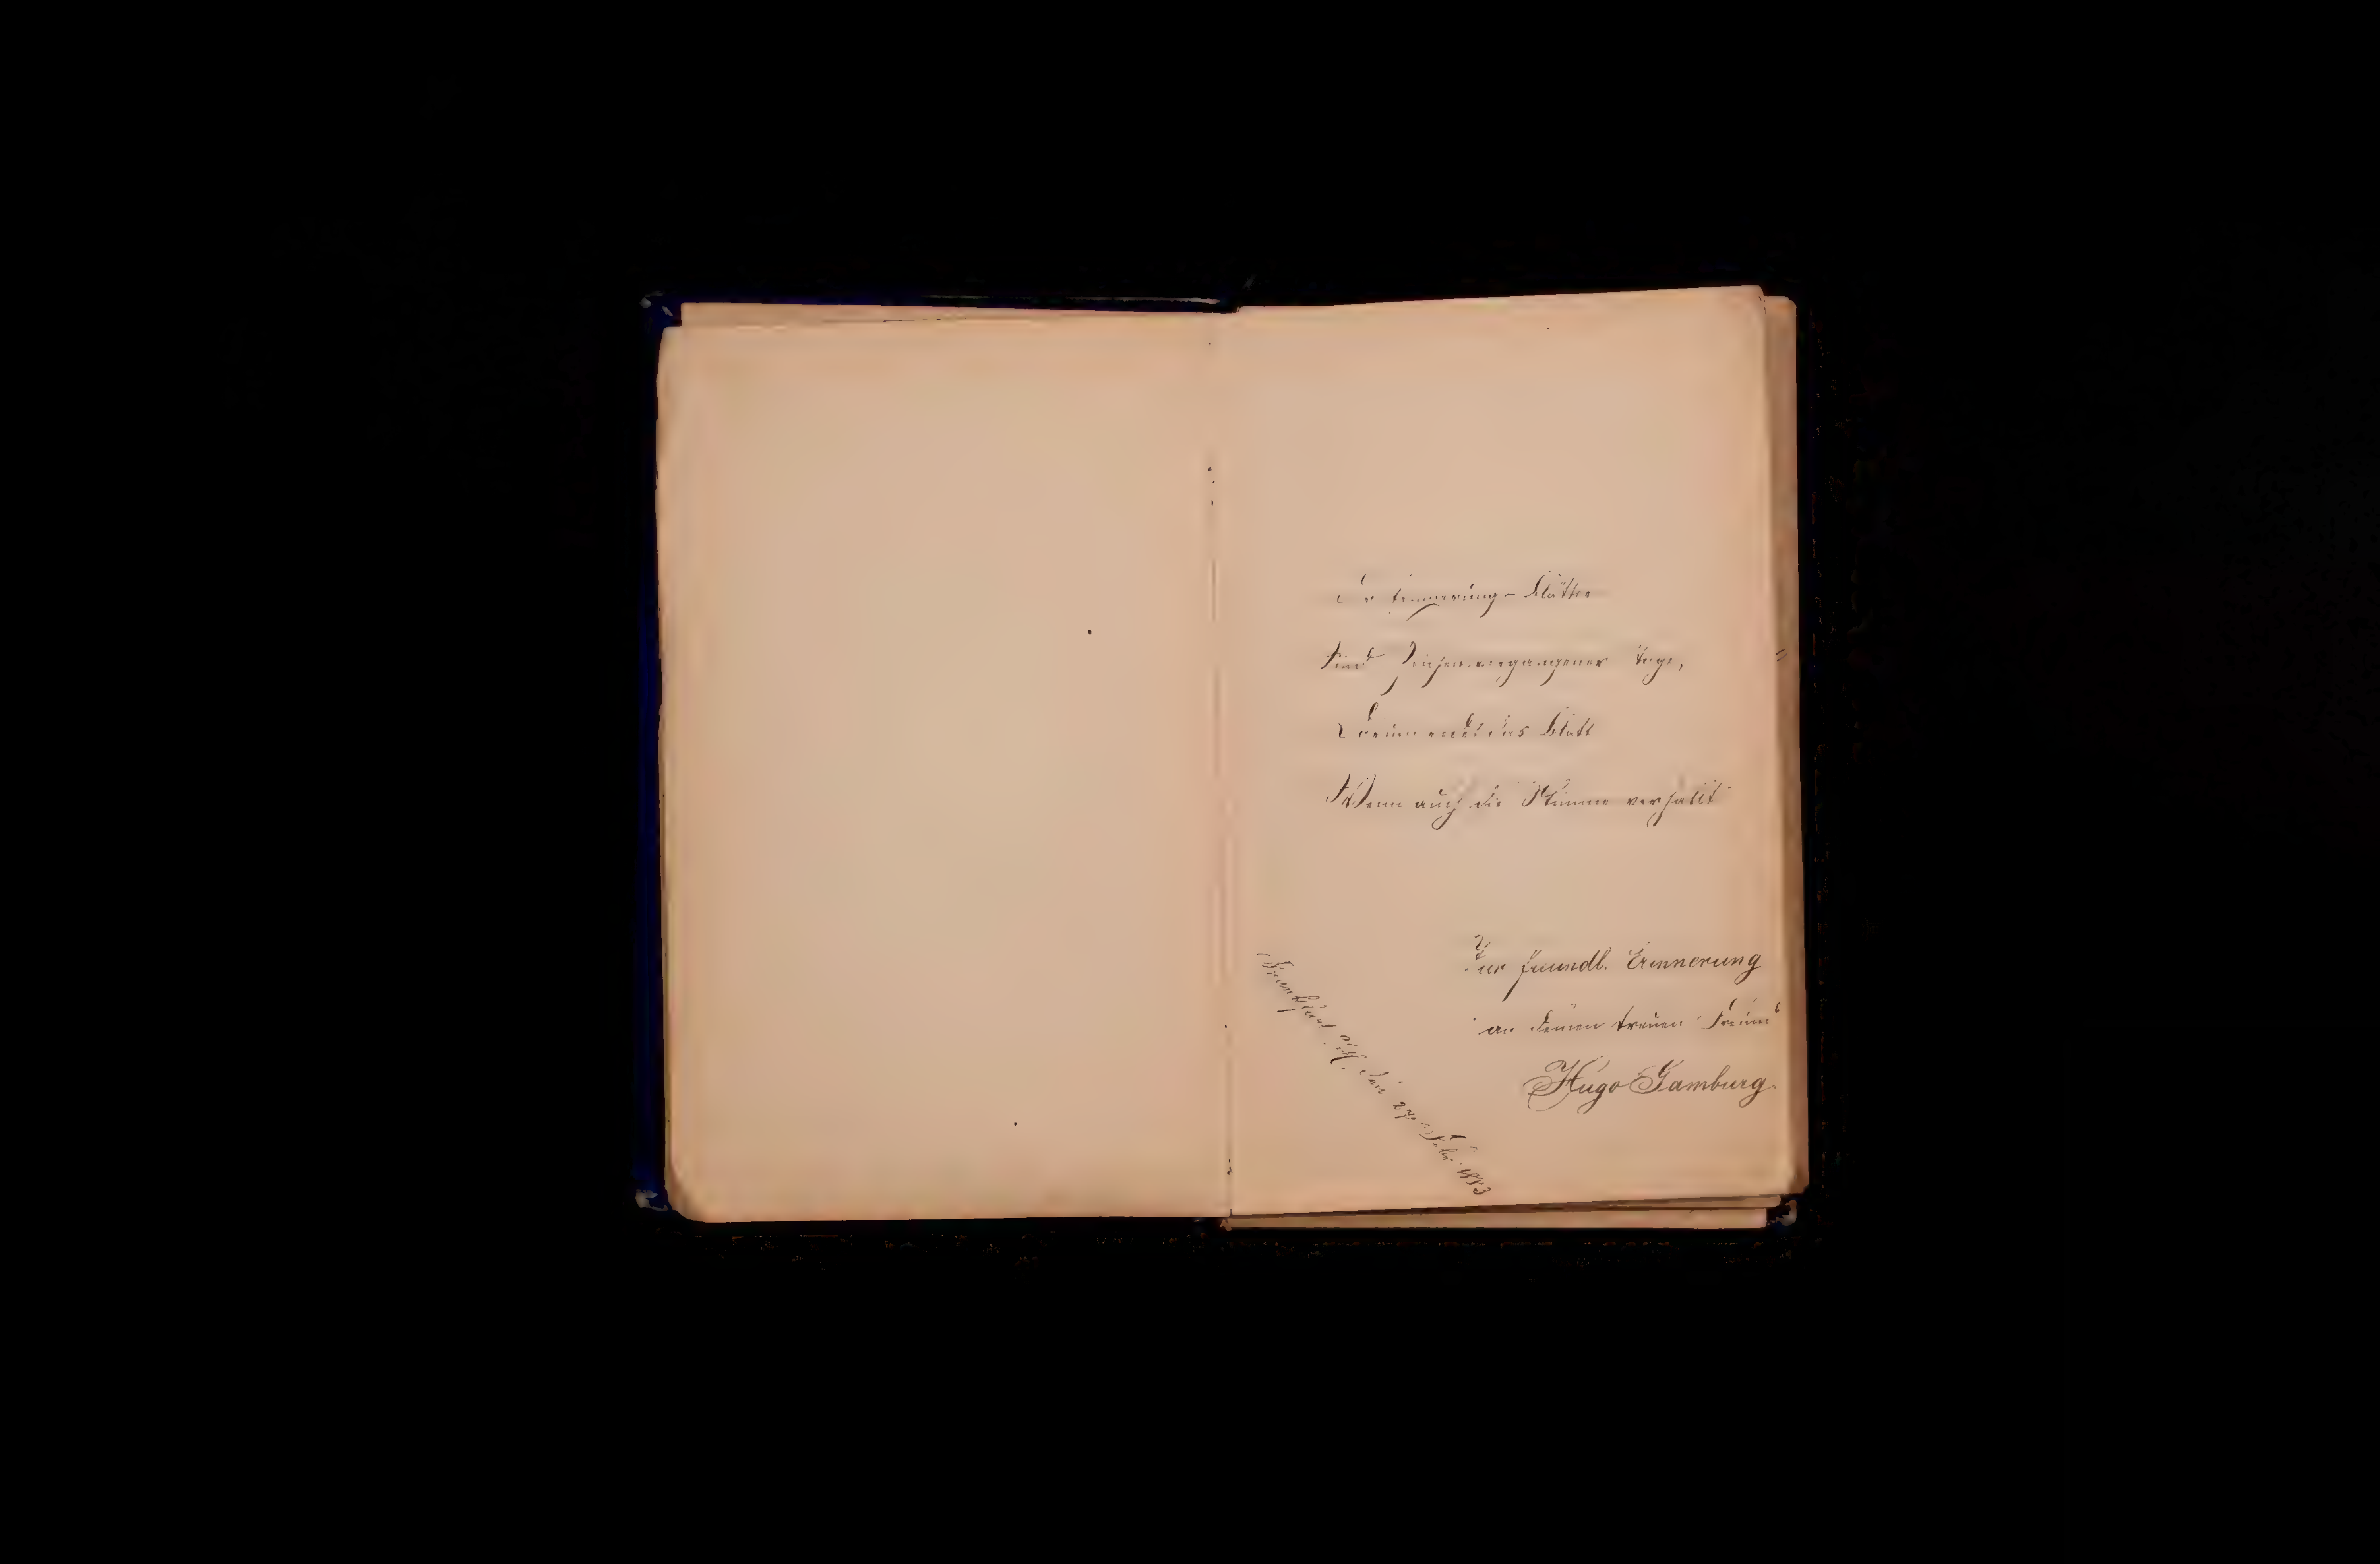 Der Erinnerung-Blätter
Sind Zeichen vergangener Tage,
Darum redet das Blatt
Wenn auch die Stimme verhallt
Zur freundl. Erinnerung
an deinen treuen Freund
Hugo Bamburg
Frankfurt a/M. den 27 Febr. 1883